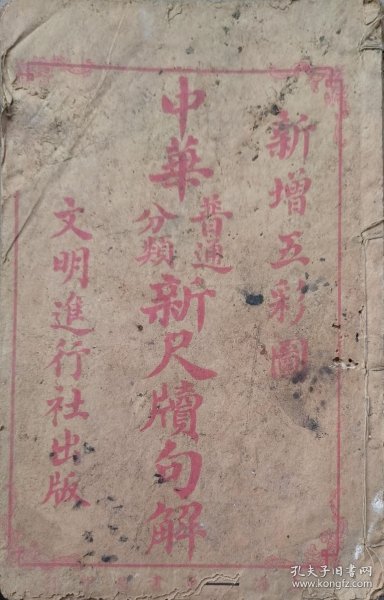 新增五彩圖
中華普通分類新尺牘句解
文明進行社出版
孔夫子旧书网
www.kongfz.com